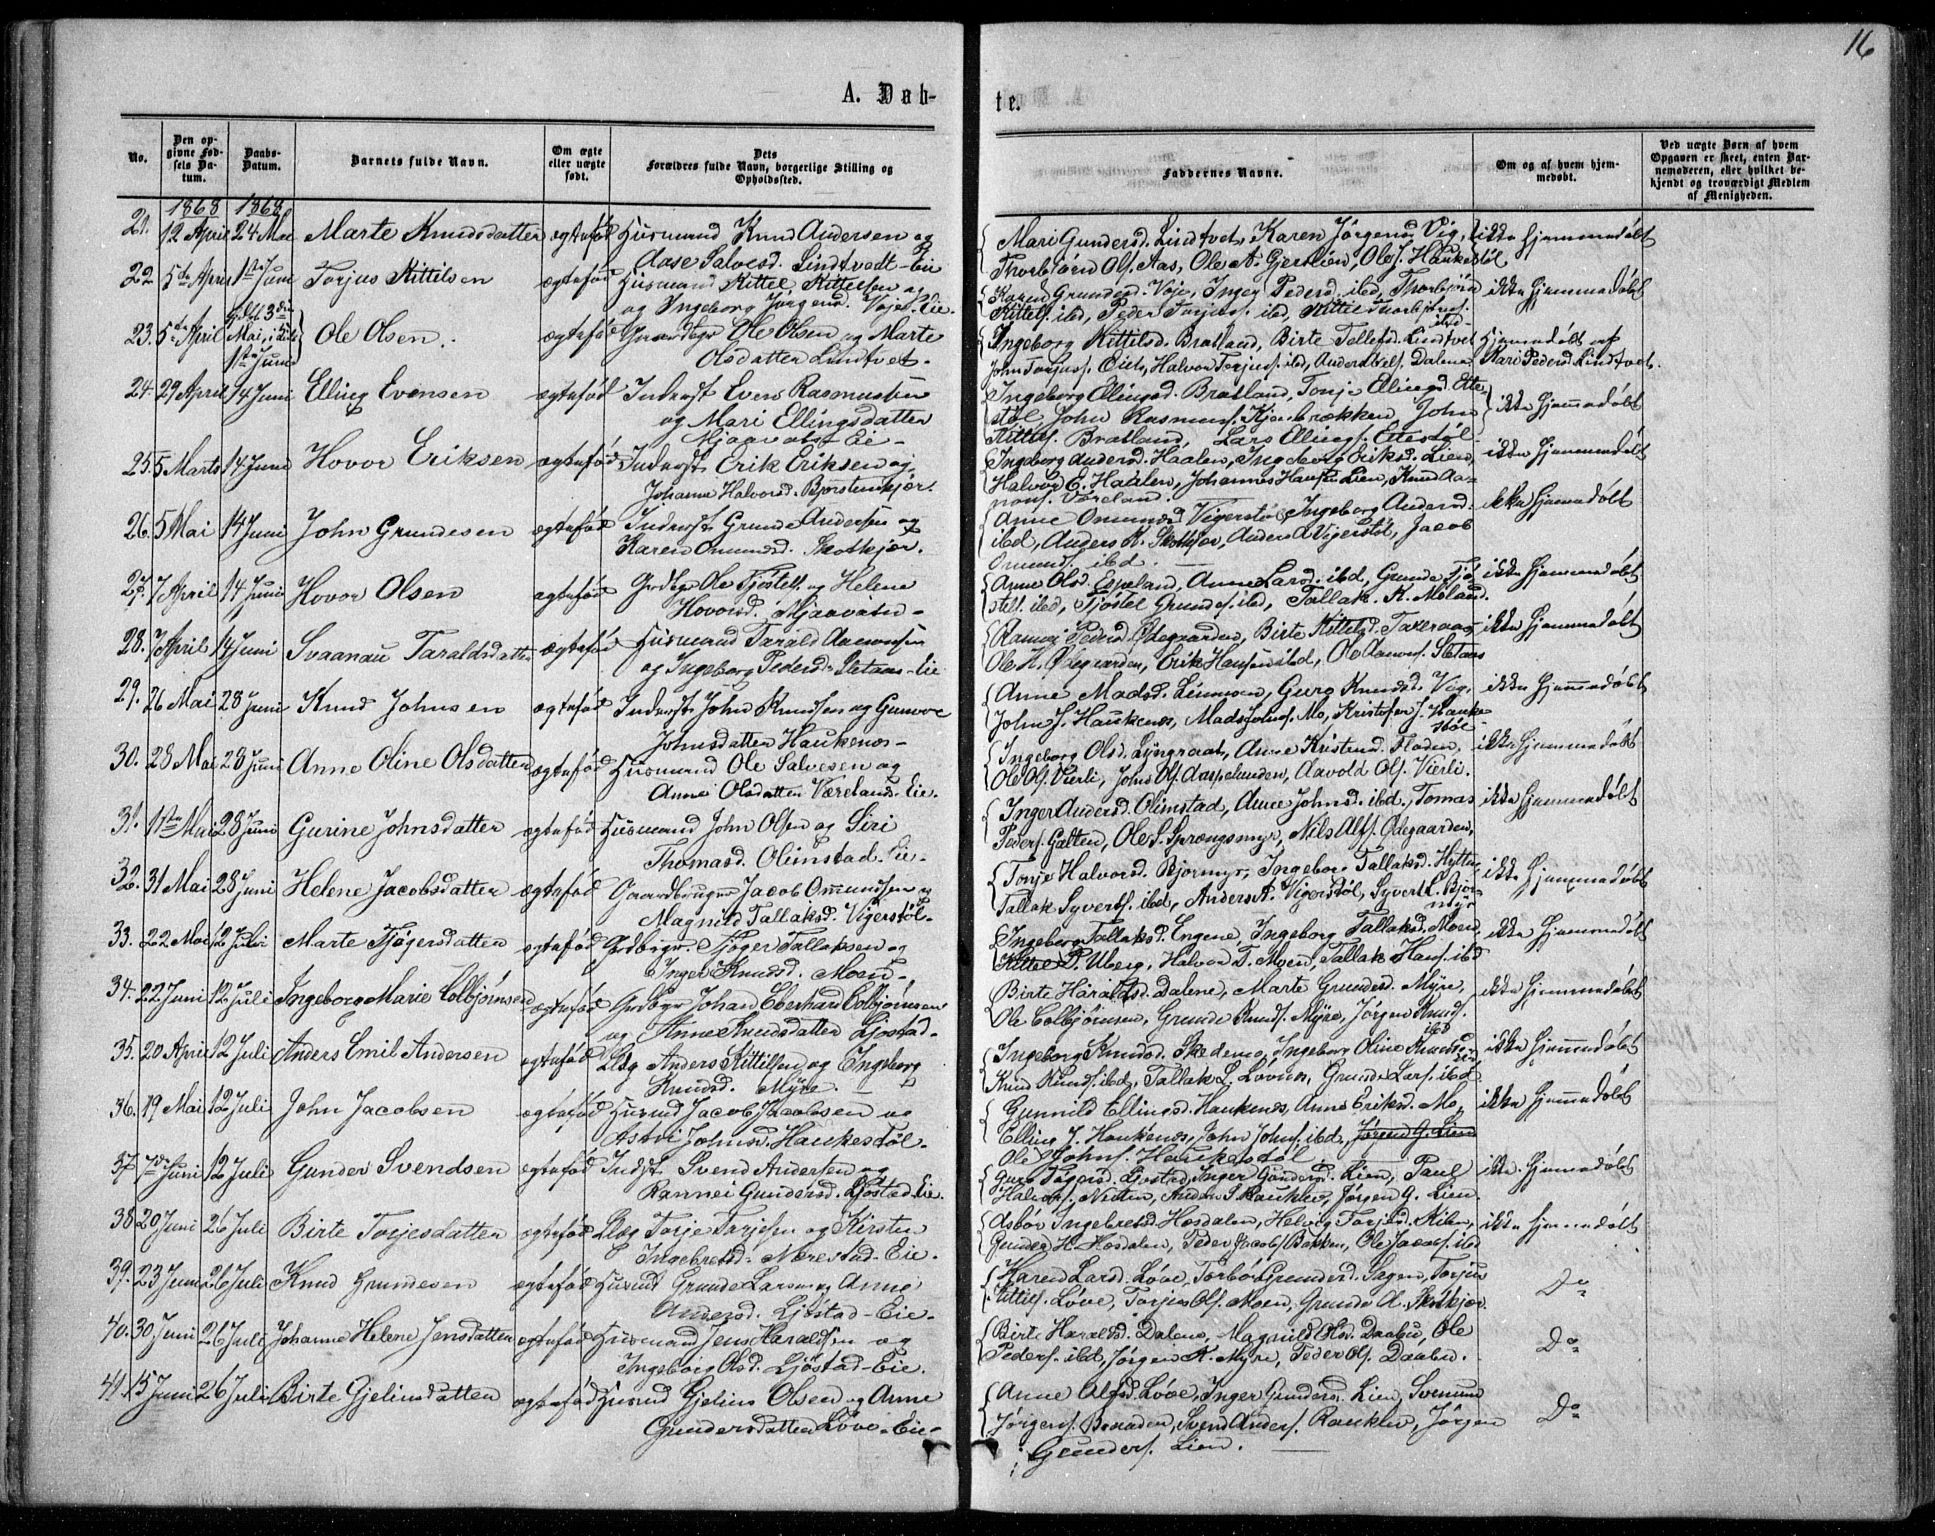 16
A. Døb-
te.
No.
Den op-
givne Fød-
sels Da-
tum.
Daabs-
Datum.
Barnets fulde Navn.
Om ægte
eller uægte
født.
Dets
Forældres fulde Navn, borgerlige Stilling og
Opholdssted.
Faddernes Navne.
Om og af hvem hjem-
medøbt.
Ved uægte Børn af hvem
Opgaven er skeet, enten Bar-
nemoderen, eller hvilket be-
kjendt og troværdigt Medlem
af Menigheden.
1868 1868
21. 12 April 24 Mai Marte Knudsdatter ægtefød Husmand Knud Andersen og
Aase Salvesd. Lindtvedt-Eie
Mari Gundersd. Lindtvet, Karen Jørgensd. Vig, ikke hjemmedøbt
Thorbjørn Ols. Aas, Ole A. Gjerslien, Ole J. Haukestøl
22. 5te April 1ste Juni Torjus Kittilsen ægtefød Husmand Kittel Kittelsen og
og Ingeborg Jørgensd. Veje Eie.
Karen Grundesd. Veje, Inger Pedersd. ibd, Thorbjørn ikke hjemmedøbt
Kittels. ibd, Peder Torjus. ibd, Kittel Thorbjørns. ibd
23. 5te April Mai, i Kirke 1ste Juni Ole Olsen. ægtefød Gaardbgr. Ole Olsen og Marte
Olsdatter Lindtvet.
Ingeborg Kittilsd. Bratland, Birte Tellefsd. Lindtvet Hjemmedøbt af
John Torjus. Eie, Halvor Terjus. ibd, Anders Dalene Mari Pedersd. Lindtvet.
24. 29 April 14 Juni Elling Evensen ægtefød Inderst Even Rasmussen
og Mari Ellingsdatter
Mjaavatn Eie-
Ingeborg Ellingsd. Bratland, Tonje Ellingsd. Ette-
støl John Rasmus. Kjønebrækken, John ikke hjemmedøbt
Kittels. Bratland, Lars Ellings. Ettestøl
25. 5 Marts 14 Juni Hovor Eriksen ægtefød Inderst Erik Eriksen og
Johanne Halvorsd. Bjørstenkjær.
Ingeborg Andersd. Haalen, Ingeborg Eriksd. Lien, ikke hjemmedøbt
Halvor E. Haalen, Johannes Hansen Lien, Knud Aa-
nons. Væreland.
26. 5 Mai 14 Juni John Grundesen ægtefød Inderst Grunde Andersen og
Karen Omundsd. Skotkjær.
Anne Omundsd. Vigerstøl, Ingeborg Andersd. ikke hjemmedøbt
ibd, Anders K. Skotkjær, Anders A. Vigerstøl, Jacob
Omunds. ibd.
27. 7 April 14 Juni Hovor Olsen ægtefød Grdbgr Ole Tjøstels. og Helene
Hovorsd. Mjaavatn-
Anne Olsd. Espeland, Anne Larsd. ibd, Grunde Tjø- ikke hjemmedøbt
stels. ibd, Tjøstel Grundes. ibd, Tallak K. Moland.
28. 7 April 14 Juni Svaanau Taraldsdatter ægtefød Husmand Tarald Aanonsen
og Ingeborg Pedersd. Sletaas-Eie
Ramoi Pedersd. Ødegaarden, Birte Kittelsd. Taxeraas, ikke hjemmedøbt
Ole K. Ødegaarden, Erik Hansen ibd, Ole Aanons. Sletaas
29. 26 Mai 28 Juni Knud Johnsen ægtefød Inderst John Knudsen og Gunvor
Johnsdatter Haukenes-
Anne Madsd. Linmoen, Guro Knudsd. Vig, ikke hjemmedøbt
John J. Haukenes, Mads Johns. Mo, Kristofer J. Hauke-
støl
30. 28 Mai 28 Juni Anne Oline Olsdatter ægtefød Husmand Ole Salvesen og
Anne Olsdatter Væreland-Eie.
Ingeborg Olsd. Lyngraat, Anne Kristensd. Floden, ikke hjemmedøbt
Ole Ols. Vierli, John Ols. Aaspelunden, Aavold Ols. Vierli.
31. 1ste Mai 28 Juni Gurine Johnsdatter ægtefød Husmand John Olsen og Siri
Thomasd. Olimstad-Eie-
Inger Andersd. Olimstad, Anne Johnsd. ibd, Tomas ikke hjemmedøbt
Peders. Galten, Ole S. Sprængsmyr, Nils Alfs. Ødegaarden,
32. 31 Mai 28 Juni Helene Jacobsdatter ægtefød Gaardbrugr Jacob Omundsen og
Magnild Tallaksd. Vigerstøl-
Tonje Halvorsd. Bjormyr, Ingebor Tallaksd. Hytten, ikke hjemmedøbt
Tallak Syverts. ibd, Anders A. Vigerstøl, Syvert L. Bjør-
myr
33. 22 Mai 12 Juli Marte Tjøgersdatter ægtefød Grdbrgr. Tjøger Tallaksen og
Inger Knudsd. Moen-
Ingeborg Tallaksd. Engene, Ingeborg Tallaksd. Moen, ikke hjemmedøbt
Kittel P. Uberg, Halvor T. Moen, Tallak Hans. ibd
34. 22 Juni 12 Juli Ingeborg Marie Colbjørnsen ægtefød Grdbgr Johan Eberhard Colbjørnsen
og Anne Knudsdatter Ljøstad-
Birte Haraldsd. Dalene, Marte Grundesd. Myre, ikke hjemmedøbt
Ole Colbjørnsen, Grunde Knuds. Myre, Jørgen Knuds.
ibd
35. 20 April 12 Juli Anders Emil Andersen ægtefød Anders Kittilsen og Ingeborg
Knudsd. Myre
Ingeborg Knudsd. Skedemo, Ingeborg Oline Knudsd. ikke hjemmedøbt
Knud Knuds. ibd, Tallak L. Løvnes, Grunde Lars. ibd
36. 19 Mai 12 Juli John Jacobsen ægtefød Husmd Jacob Jacobsen og
Astri Johnsd. Haukestøl.
Gunnild Ellingsd. Haukenes, Anne Eriksd. Mo, ikke hjemmedøbt
Elling J. Haukenes, John Johns. ibd, Jørgen G. Lien
Ole Johns. Haukestøl
37. 7de Juni 12 Juli Gunder Svendsen ægtefød Indst Svend Andersen og
Rannei Gundersd. Ljøstad-Eie
Guro Tøgersd. Ljøstad, Inger Gundersd. Lien, Paul ikke hjemmedøbt
Halvors. Nidten, Anders S. Rauklev, Jørgen G. Lien.
38. 20 Juni 26 Juli Birte Torjesdatter ægtefød Torje Torjesen og Kirsten
Ingebretsd. Nærestad-Eie.
Asbor Ingebretsd. Hosdalen, Helvig Torjesd. Kilen, ikke hjemmedøbt
Gunder H. Hosdalen, Peder Jacobs. Bakken, Ole Jacobs. ibd
39. 23 Juni 26 Juli Knud Grundesen ægtefød Husmd Grunde Larsen og Anne
Andersd. Ljøstad-Eie.
Karen Larsd. Løve, Torbor Grundesd. Sagen, Torjus Do
Kittils. Løve, Torjus Ols. Moen, Grunde A. Skotkjær
40. 30 Juni 26 Juli Johanne Helene Jensdatter ægtefød Husmand Jens Haraldsen og
Ingeborg Olsd. Ljøstad-Eie.
Birte Haraldsd. Dalene, Magnild Olsd. Daabu, Ole Do
Peders. ibd, Jørgen K. Myre, Peder Ols. Daabu.
41. 15 Juni 26 Juli Birte Gjelinsdatter ægtefød Husmd Gjelius Olsen og Anne
Gundersdatter Løve-Eie-
Anne Alfsd. Løve, Inger Gundersd. Lien, Svenum
Jørgens. Braaden, Svend Anders. Rauklev, Jørgen Do
Gunders. Lien.